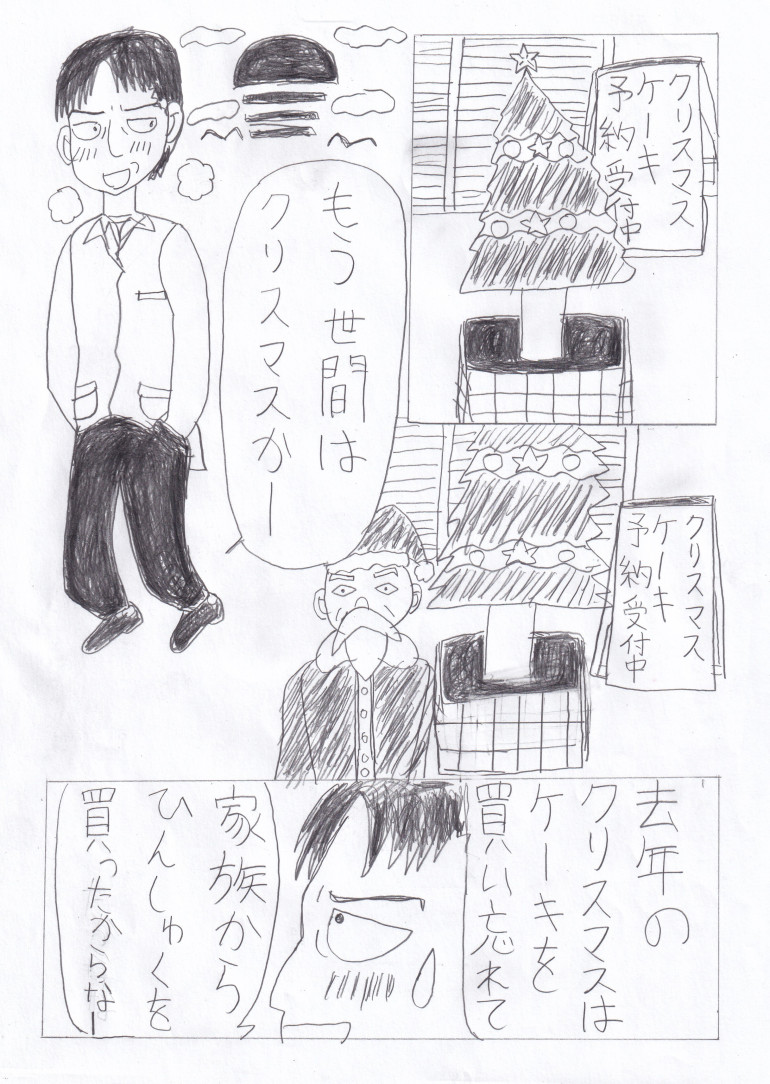 クリスマス
ケーキ
予約受付中
もう世間は
クリスマスかー
クリスマス
ケーキ
予約受付中
去年の
クリスマスは
ケーキを
買い忘れて
家族から
ひんしゅくを
買ったからなー